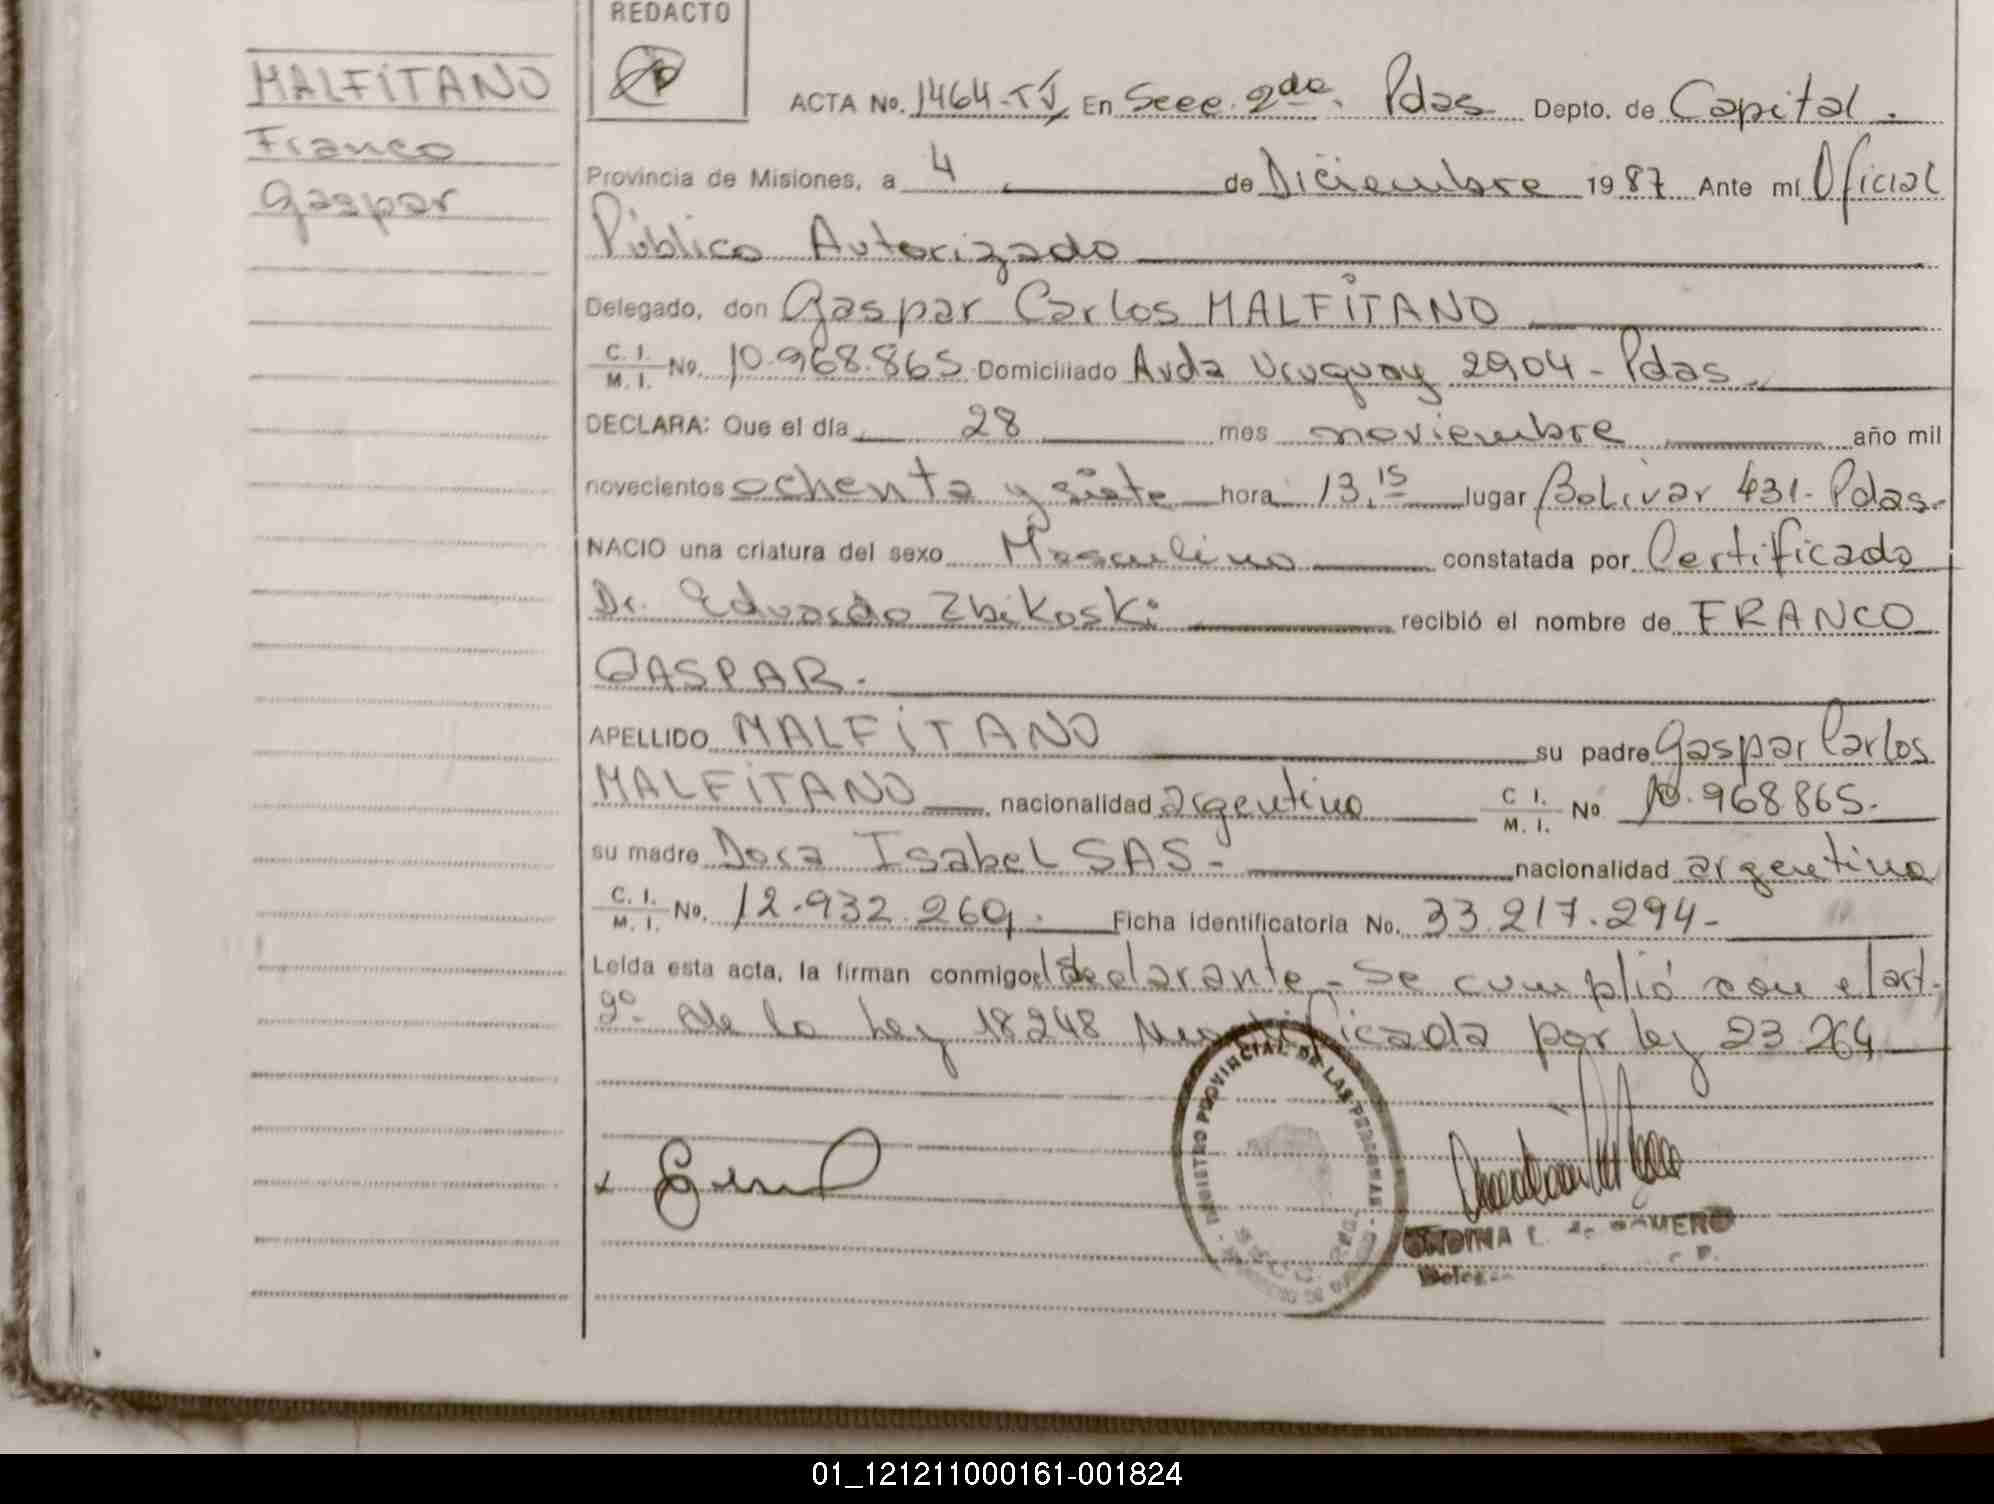 REDACTO
MALFITANO
Franco
Gaspar
ACTA No. 1464-TJ En Secc. 2da. Pdas Depto. de Capital.
Provincia de Misiones, a 4 de Diciembre 1987 Ante mí Oficial
Público Autorizado
Delegado, don Gaspar Carlos MALFITANO
C. I. M. I. No. 10.968.865 Domiciliado Avda Uruguay 2904 - Pdas.
DECLARA: Que el día 28 mes noviembre año mil
novecientos ochenta y siete hora 13,15 lugar Bolívar 431- Pdas.-
NACIO una criatura del sexo Masculino constatada por Certificado
Dr. Eduardo Zbikoski recibió el nombre de FRANCO
GASPAR.
APELLIDO MALFITANO su padre Gaspar Carlos
MALFITANO, nacionalidad argentino C I. M. I. No 10.968865.
su madre Dora Isabel SAS- nacionalidad argentina
C. I. M. I. No. 12.932.269. Ficha identificatoria No. 33.217.294-
Leída esta acta, la firman conmigo el declarante - Se cumplió con el art.
9º de la ley 18248 Modificada por ley 23.264
REGISTRO PROVINCIAL DE LAS PERSONAS
SECC.
ONDINA